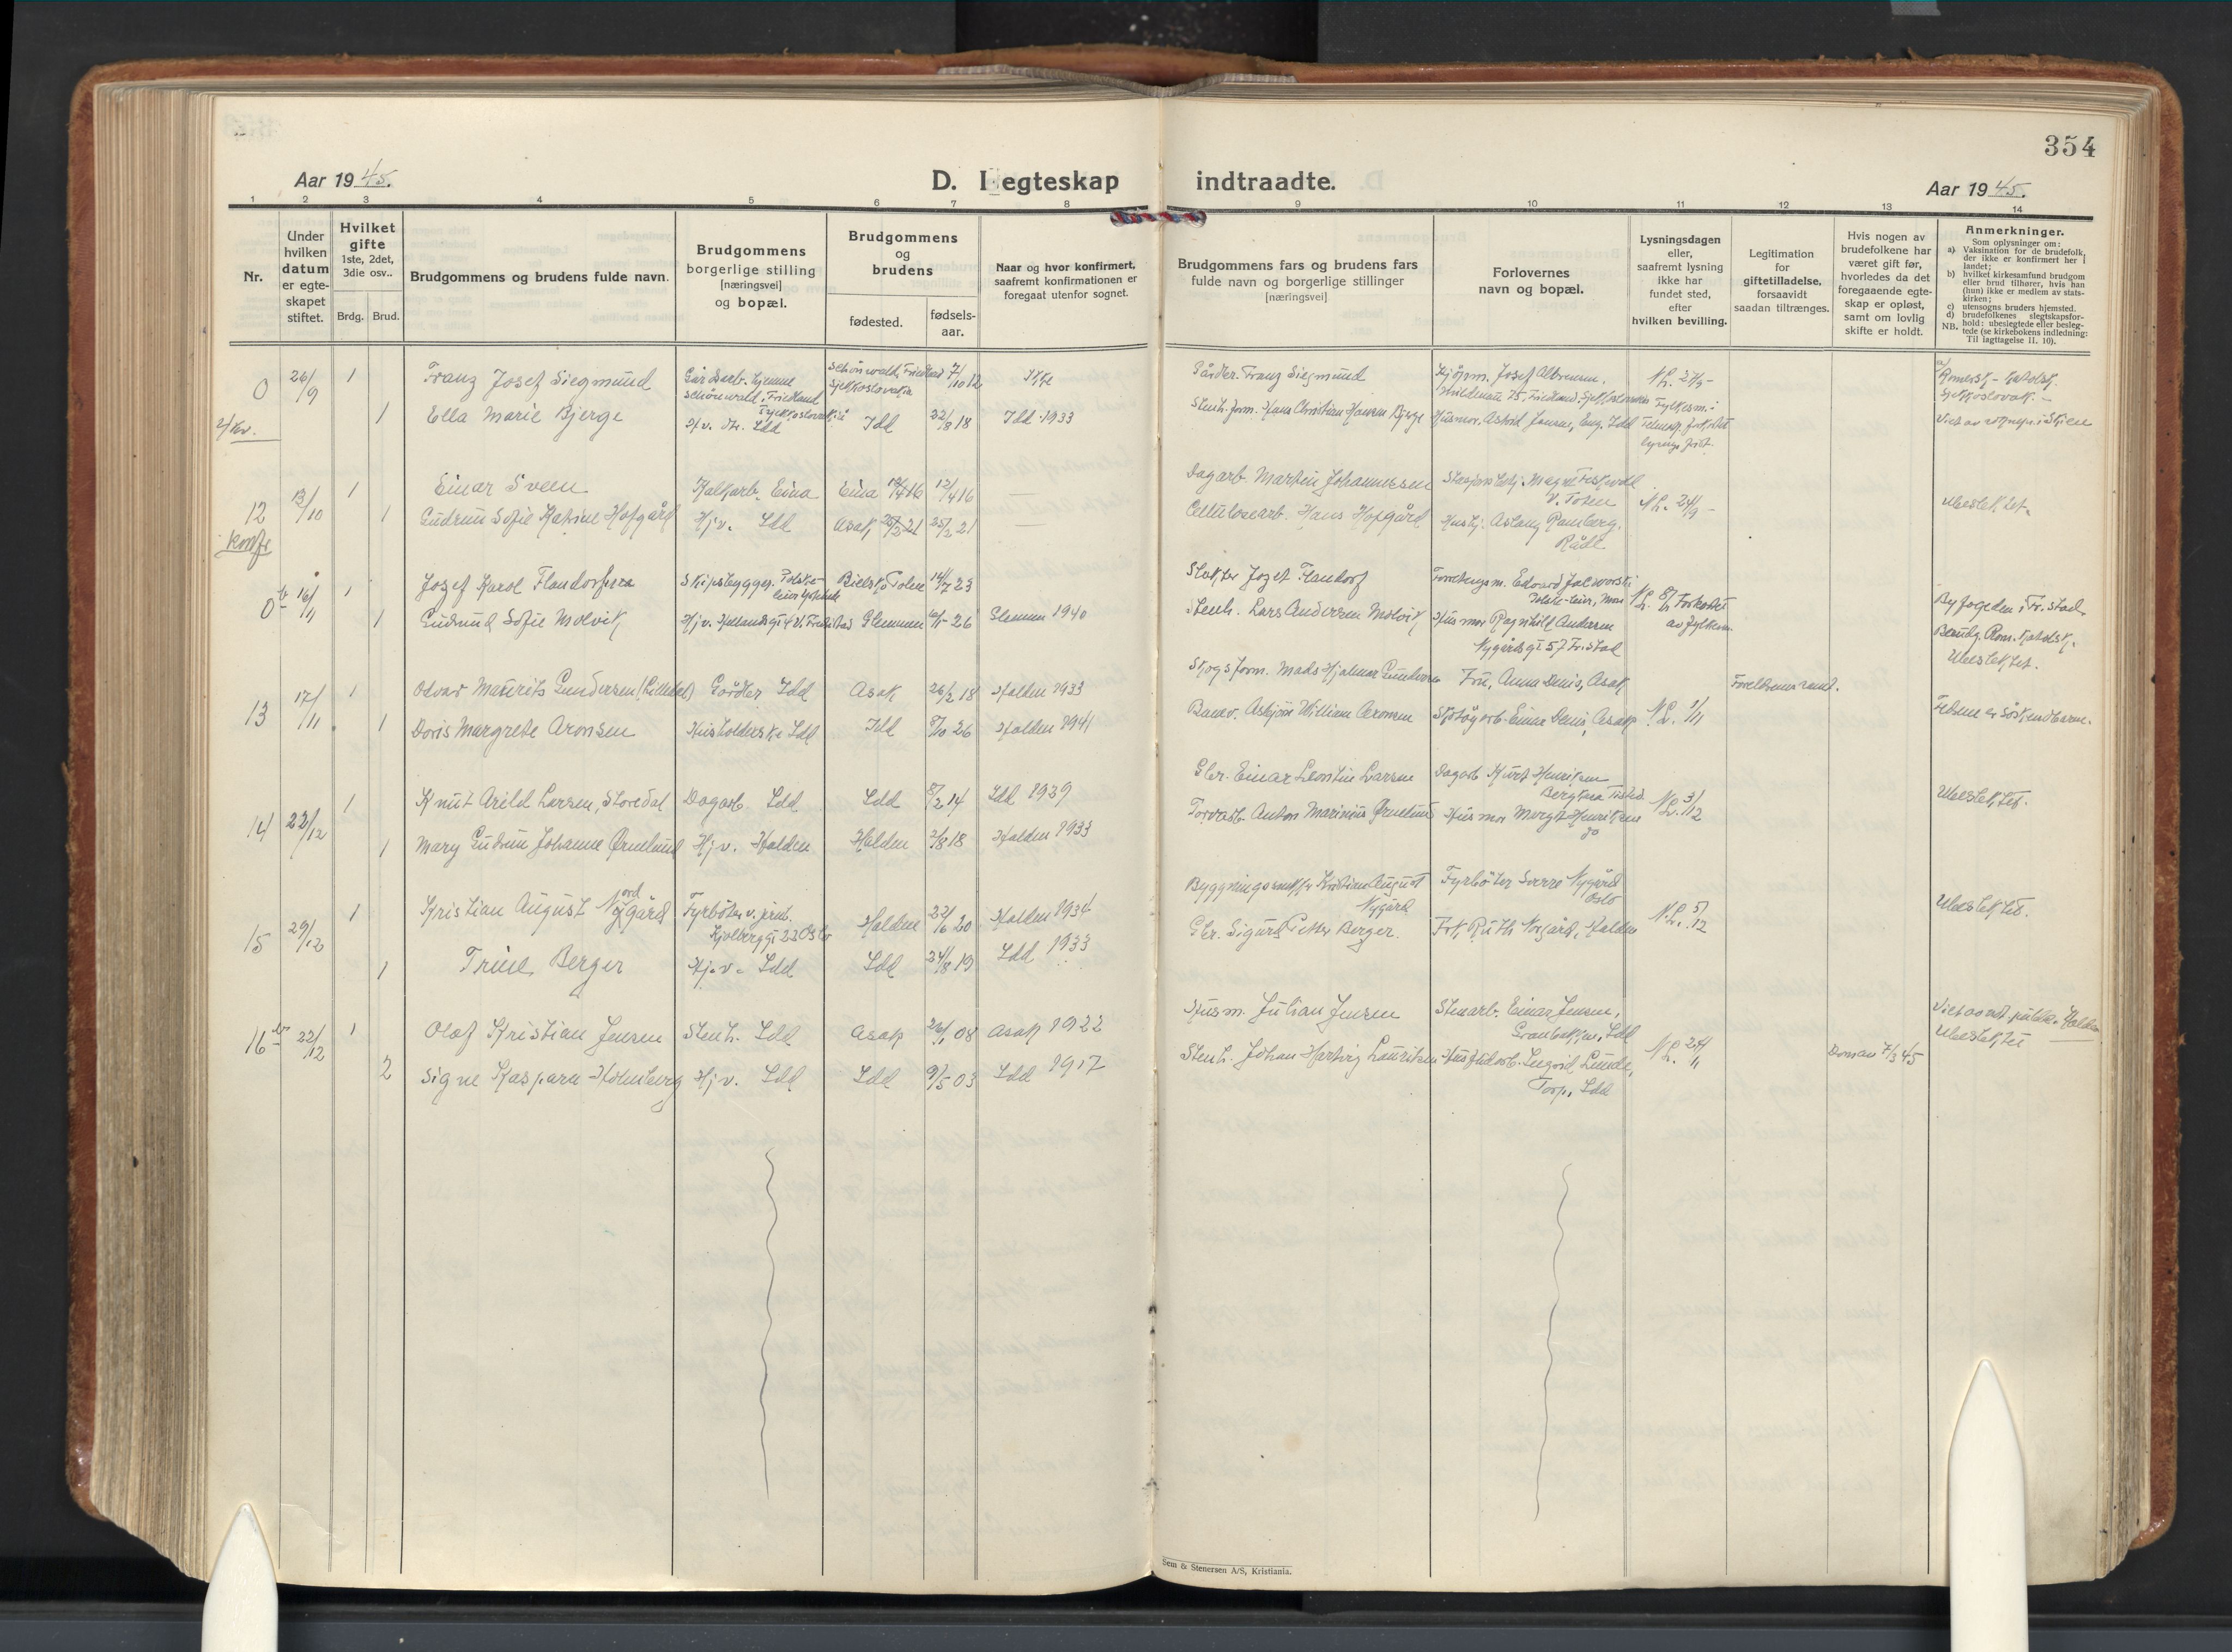 354
Aar 1945.
D. I egteskap indtraadte.
Aar 1945.
1 2 3 4 5 6 7 8 9 10 11 12 13 14
Nr.
Under hvilken datum er egte-skapet stiftet.
Hvilket gifte 1ste, 2det, 3die osv..
Brdg. Brud.
Brudgommens og brudens fulde navn.
Brudgommens borgerlige stilling [næringsvei] og bopæl.
Brudgommens og brudens
fødested.
fødsels-aar.
Naar og hvor konfirmert, saafremt konfirmationen er foregaat utenfor sognet.
Brudgommens fars og brudens fars fulde navn og borgerlige stillinger [næringsvei]
Forlovernes navn og bopæl.
Lysningsdagen eller, saafremt lysning ikke har fundet sted, efter hvilken bevilling.
Legitimation for giftetilladelse, forsaavidt saadan tiltrænges.
Hvis nogen av brudefolkene har været gift før, hvorledes da det foregaaende egte-skap er opløst, samt om lovlig skifte er holdt.
Anmerkninger.
Som oplysninger om:
a) Vaksination for de brudefolk, der ikke er konfirmert her i landet;
b) hvilket kirkesamfund brudgom eller brud tilhører, hvis han (hun) ikke er medlem av stats-kirken;
c) utensogns bruders hjemsted.
d) brudefolkenes slegtskapsfor-hold: ubeslegtede eller besleg-tede (se kirkebokens indledning: Til iagttagelse II. 10).
NB.
0 26/9 1 Franz Josef Siegmund
Schönwald, Friedland Tjekkoslovakia 7/10 12 Ikke
Gårdbr. Franz Siegmund
N.L. Romersk-katolsk.
1 Ella Marie Bjerge
Hjv. Idd Idd 22/8 18 Idd 1933
Stenh. form. Hans Christian Hansen Bjerge Husmor. Astrid Jensen, Eng. Idd
12 13/10 1 Einar Sveen Kalkarb. Eina Eina 12/4 16 —
Dagarb. Martin Johannessen
V. Toten N.L. 24/9 – Ubeslektet.
Konfr
1 Gudrun Sofie Katrine Hofgård Hjv. Idd Asak 25/2 21 —
Cellulosearb. Hans Hofgård Aslaug Ramberg, Råde
0 16/11 1 Josef Karol Skipsbygger. Polske-leir Bielsko Polen 14/7 23
Slakter Jozef Flandorf
Polske-leir, Moss N.L. 8/11 Forkortet av fylkesm. Byfogeden i Fr.stad
1 Gudrund Sofie Molvik Hjv. Glemmen 26 Glemmen 1940
Stenh. Lars Andersen Molvik Husmor Ragnhild Andersen Nygårdsgt 57 Fr.stad
Brudg. Rom. Katolsk. Ubeslektet.
13 17/11 1 Odvar Maurits Gundersen (Lilledal) Gårdbr. Idd Asak 26/2 18 Halden 1933
Skogsform. Mads Hjalmar Gundersen Fru, Anna Denis, Asak
N.L. 1/11 Fedrene er söskendbarn.
1 Doris Margrete Aronsen Husholderske Idd Idd 8/10 26 Halden 1941
Banev. Asbjörn William Aronsen Skotöyarb. Einar Denis, Asak
14 22/12 1 Knut Arild Larsen, Storedal Dagarb. Idd Idd 8/2 14 Idd 1939
Gbr. Einar Leontin Larsen Dagarb. Kurt Henriksen
N.L. 3/12 Ubeslektet.
1 Mary Gudrun Johanne Ørnelund Hjv. Halden Halden 2/8 18 Halden 1933
Torvarb. Anton Marinius Ørnelund Husmor Margit Henriksen do
15 29/12 1 Kristian August Nygård Fyrböter v. jernb. Kjølberggt 22 Oslo Halden 22/6 20 Halden 1934
Kristian August Nygård Fyrböter Sverre Nygård Oslo
N.L. 5/12 Ubeslektet.
1 Trine Berger Hj.v. Idd Idd 24/8 19 Idd 1933
Gbr. Sigurd Petter Berger. Frk. Ruth Norgård, Halden
16 22/12 1 Olaf Kristian Jensen Stenh. Idd Asak 26/1 08 Asak 1922
Husm. Julian Jensen Stenarb. Einar Jensen, Granbakken, Idd
N.L. 24/11 Ubeslektet
2 Signe Kaspara Holmberg Hjv. Idd Idd 9/5 03 Idd 1917
Stenh. Johan Hartvig Lauritsen Ingrid Lunde, Torp, Idd
Dom av 7/3 45
Sem & Stenersen A/S, Kristiania.